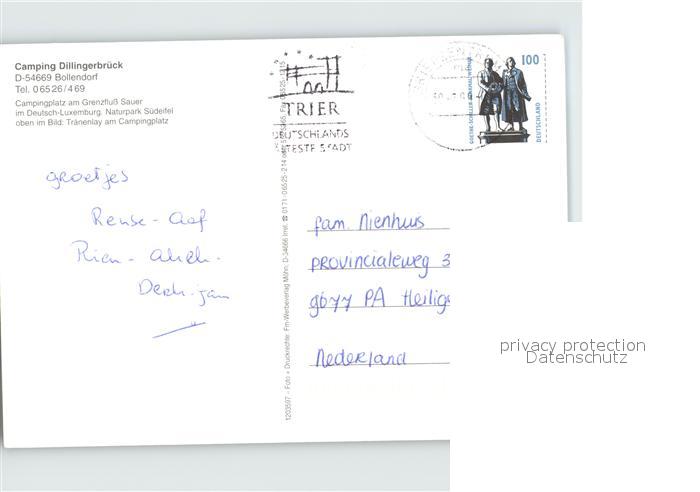 Camping Dillingerbrück
D-54669 Bollendorf
Tel. 06526/469
Campingplatz am Grenzfluß Sauer
im Deutsch-Luxemburg. Naturpark Südeifel
oben im Bild: Tränenlay am Campingplatz
TRIER
DEUTSCHLANDS
ÄLTESTE STADT
100
GOETHE-SCHILLER-DENKMAL WEIMAR
DEUTSCHLAND
groetjes
Rense - Aaf
Rien -
Derk-jan
fam. Nienhuis
provincialeweg 3
9677 PA Heilige
Nederland
1203597 - Foto + Druckrechte: Fm-Werbeverlag Möhn, D-54666 Irrel,
privacy protection
Datenschutz